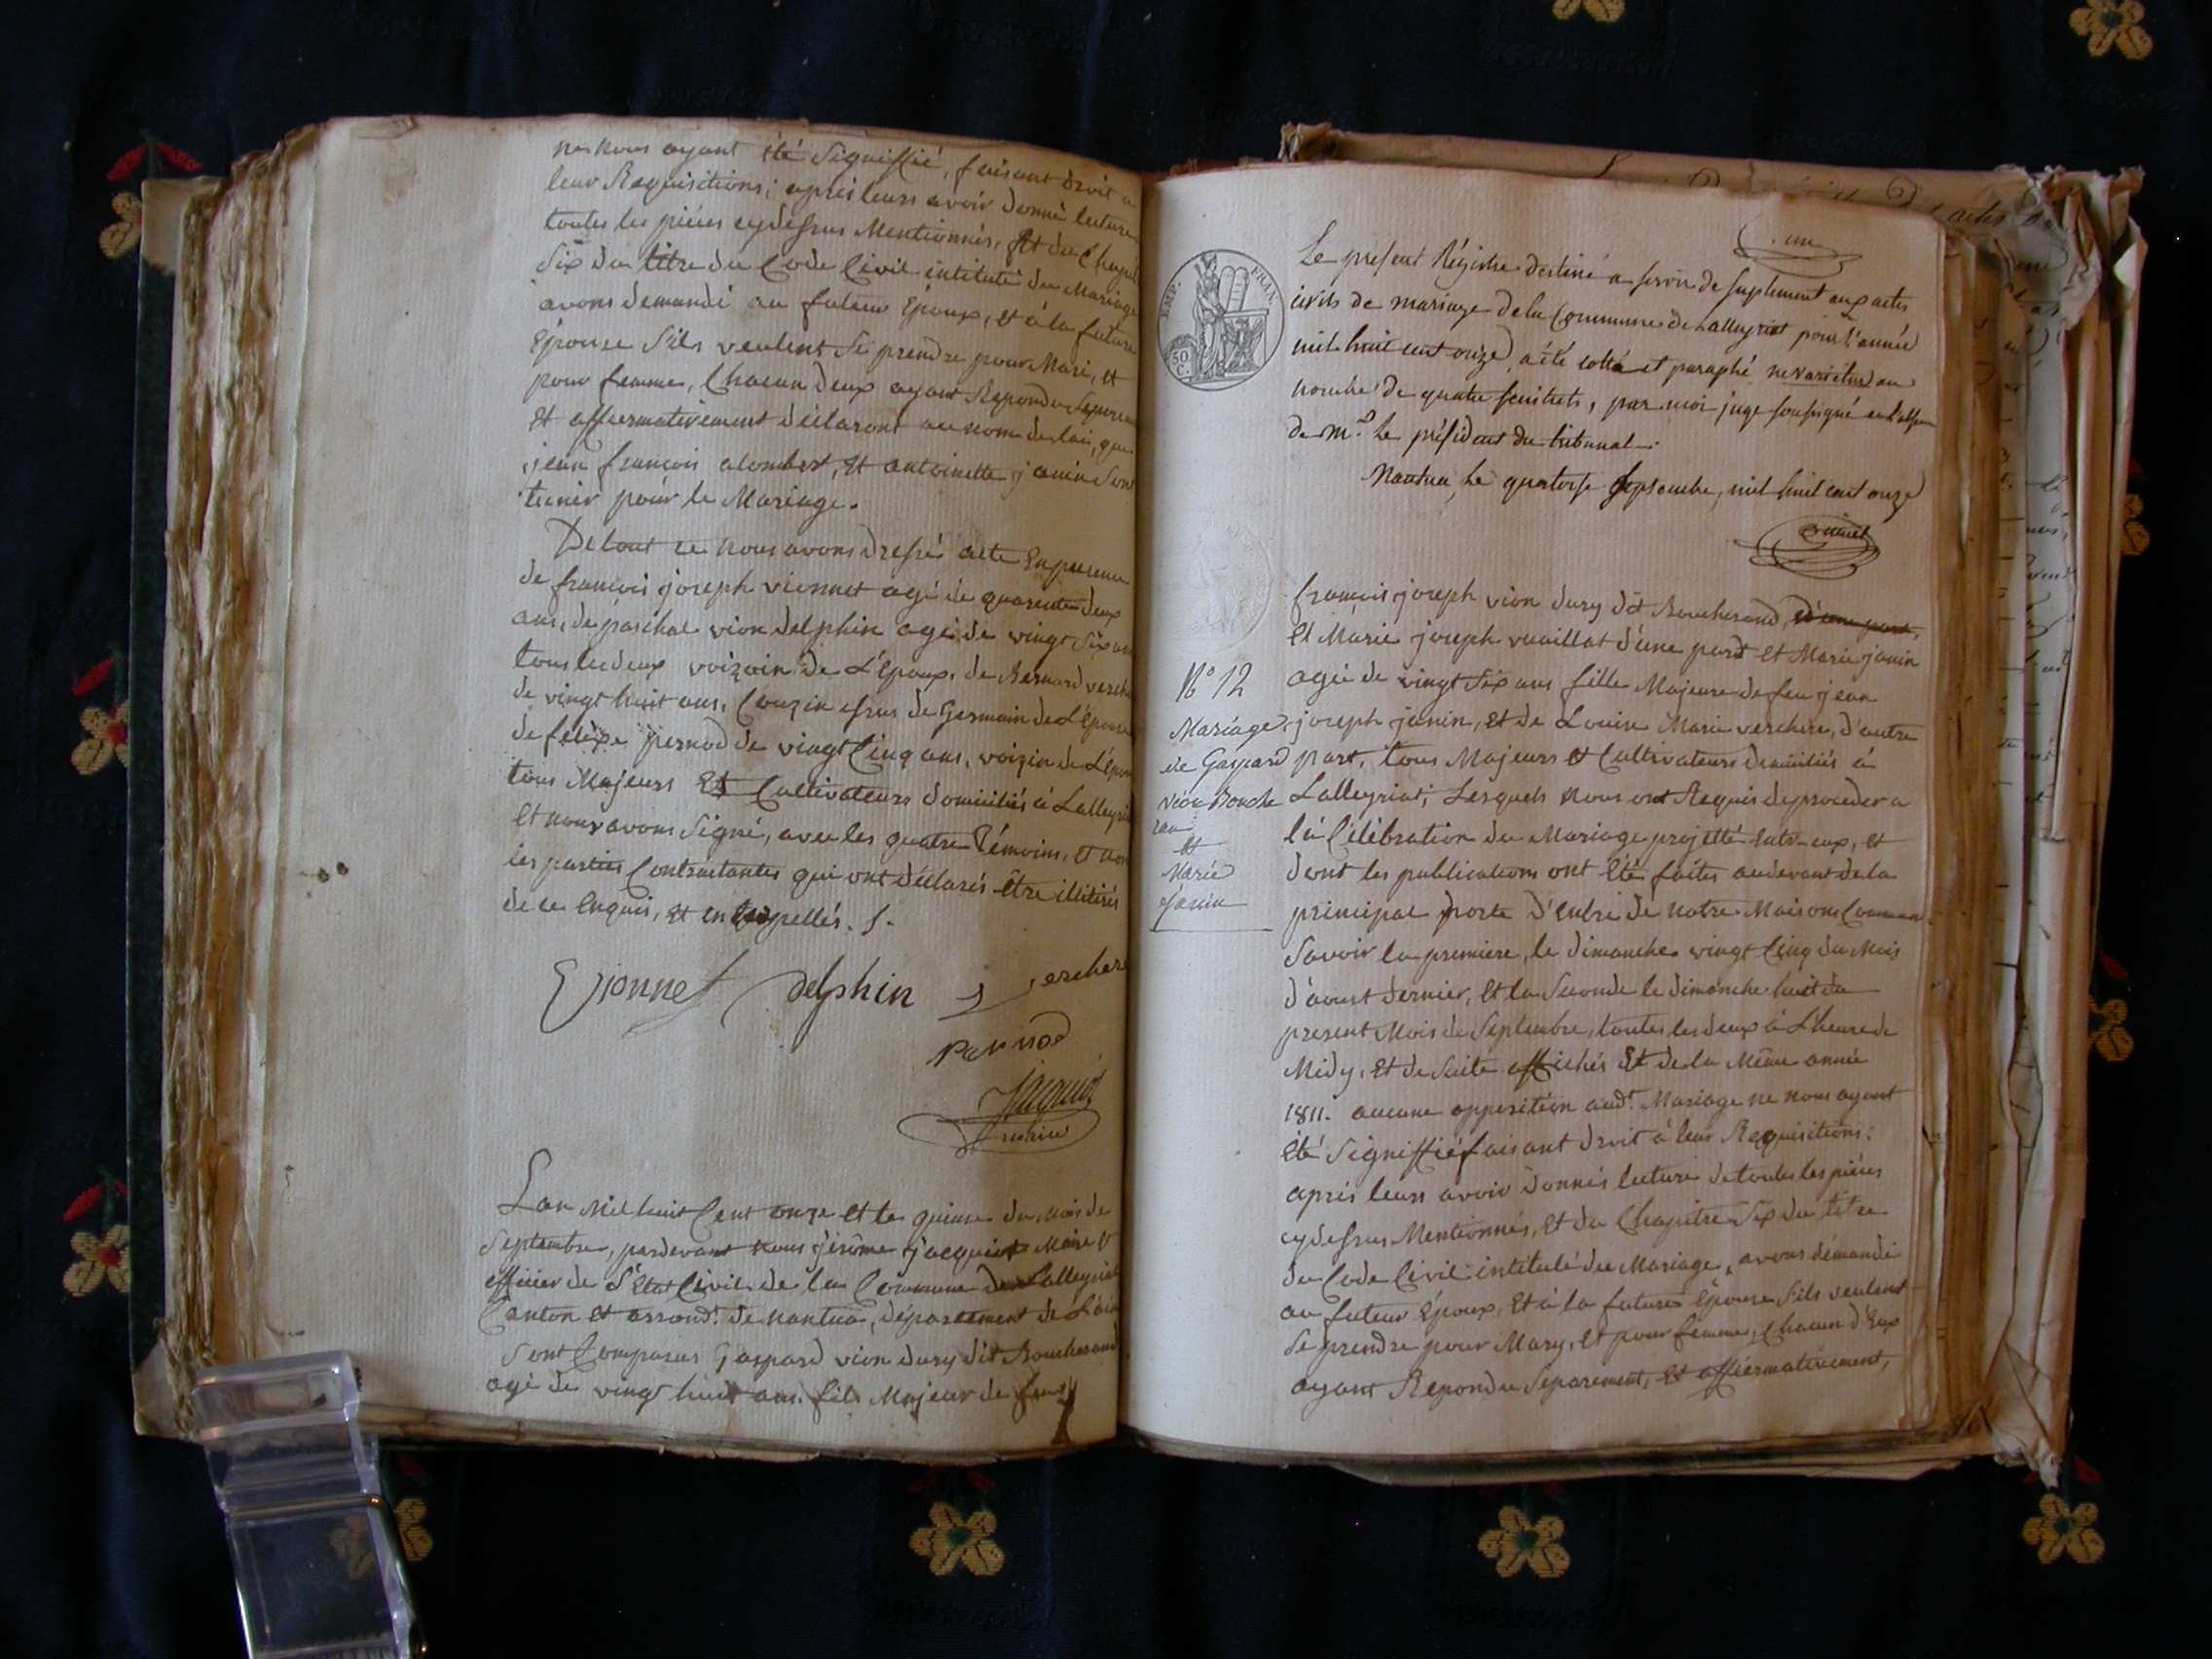 ne nous ayant été Signiffié, faisant droit a
leur Requisitions; après leurs avoir donné lecture
toutes les pièces cydessus Mentionnés, Et du Chapit
Six du titre du Code Civil intitulé du Mariage
avons demandé au futeur Epoux, et à la future
Epouse S'ils veulent Se prendre pour Mari, et
pour femme, Chacun deux ayant Repondu Separem
Et affiermativement déclarons au nom de la loi, que
jean françois alombert, Et antoinette janin Sont
unir pour le Mariage.
De tout ce nous avons dressé acte En presence
de françois joseph vionnet agé de quarente deux
ans, de paschal vion delphin agé de vingt Six ans
tous les deux voizain de L'Epoux, de Bernard verch
de vingt huit ans, Couzin issus de Germain de L'Epouse
de felixe pernod de vingt Cinq ans, voizin de L'Epou
tous Majeurs Et Cultivateurs domiciliés à Lalleyriat
Et nous avons Signé, avec les quatre Témoins, et non
les parties Contractantes qui ont déclarés être illitirés
de ce Enquis, et interpellés. S.
Vionnet delphin Verchere
Pernod
Jacquiot
maire
L'an Mil huit Cent onze et le quinze du mois de
Septembre, pardevant nous jérôme jacquiot Maire &
officier de l'Etat Civil de la Commune de Lalleyriat
Canton et arrond.t de nantua, département de L'ain
Sont Comparus Gaspard vion dury dit Boucherand
agé de vingt huit ans. fils Majeur de feus
un
Le present Régistre destiné a servir de suplement aux actes
civils de mariage de la Commune de Lalleyriat pour l'année
mil huit cent onze, a été cotté et paraphé ne varietur au
nombre de quatre feuillets, par moi juge soussigné en l'abse
de M.r le président du tribunal.
Nantua, Le quatorze septembre, mil huit cent onze
N° 12
Mariage
de Gaspard
vion Bouche
ran
Et
Marie
Janin
françois joseph vion dury dit Boucherand, d'une part,
Et Marie joseph vuaillat d'une part et Marie janin
agée de vingt Six ans fille Majeure de feu jean
joseph janin, et de Louise Marie verchere, d'autre
part, tous Majeurs et Cultivateurs domiciliés à
Lalleyriat; Lesquels nous ont Requis de proceder a
la Célébration du Mariage projetté entr-eux, et
dont les publications ont été faites audevant de la
principal porte d'entré de notre Maison Commun
Savoir la premiere, le dimanche vingt Cinq du Mois
d'aoust dernier, Et la Seconde le dimanche huit du
present Mois de Septembre, toutes les deux à L'heure de
Midy, Et de Suite affichés Et de la Même année
1811. aucune opposition aud.t Mariage ne nous ayant
été Signiffié faisant droit à leur Requisitions:
après leurs avoir donnés lecture de toutes les pièces
cydessus Mentionnés, et du Chapitre Six du titre
du Code Civil intitulé du Mariage, avons demandé
au futeur Epoux, Et à la future Epouse S'ils veulent
Se prendre pour Mary, et pour femme, Chacun d'Eux
ayant Repondu Séparement, Et affiermativement,